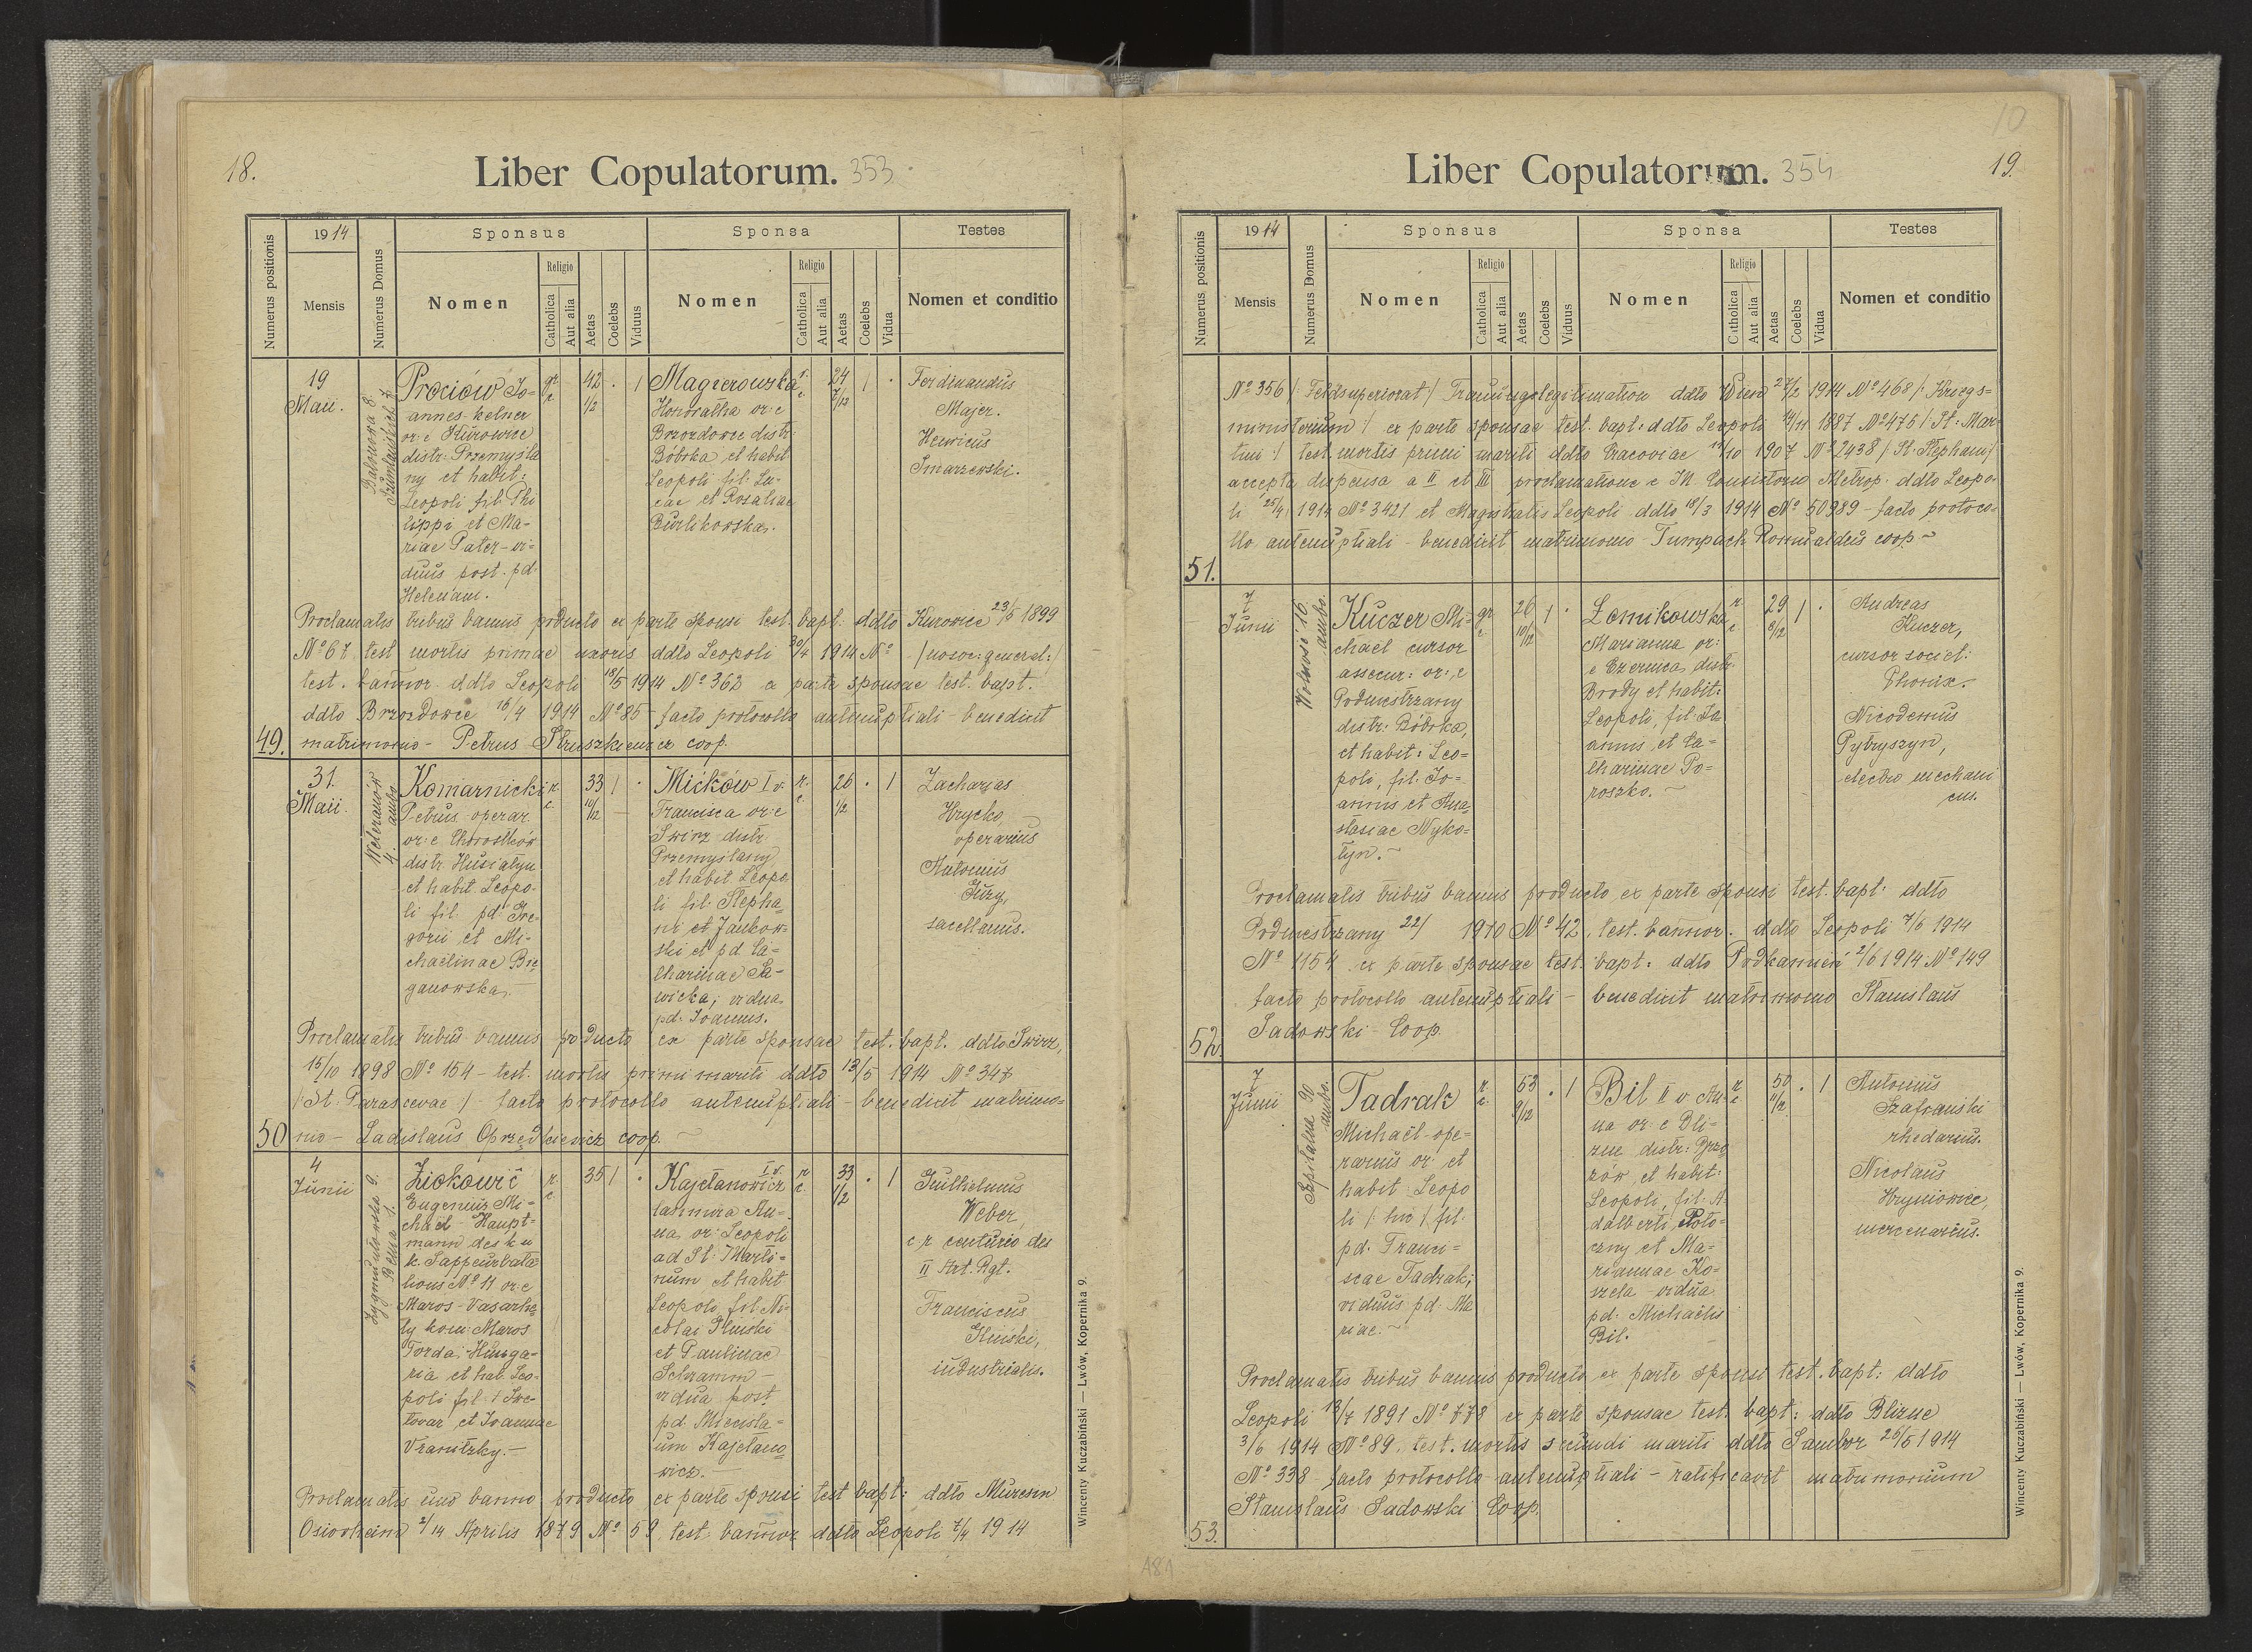 18.
Liber Copulatorum. 353
Numerus positionis
1914
Mensis
Numerus Domus
Sponsus
Nomen
Religio
Catholica
Aut alia
Aetas
Coelebs
Viduus
Sponsa
Nomen
Religio
Catholica
Aut alia
Aetas
Coelebs
Vidua
Testes
Nomen et conditio
19
Maii.
Prociów Jo-
annes kelner
or: e Kurowice
distr: Przemysla
ny et habit:
Leopoli fil: Phi
lippi et Ma-
riae Pater - vi=
duus post. pd.
Helenam.
gr
c
42
1/2
1
Magierowska
Honoratha or: e
Brzozdowce distr:
Bóbrka et habit
Leopoli fil: Lu-
cae et Rosaliae
Burlikowska.
r.
c
24
7/12
1
Ferdinandus
Majer.
Henricus
Smarzewski.
Proclamatis tribus bannis producto ex parte sponsi test. bapt: ddto Kurowice 23/5 1899
No 67 test mortis primae uxoris ddto Leopoli 30/4 1914 No /nosoc: general:/
test. bannor ddto Leopoli 18/5 1914 No 362 ex parte sponsae test. bapt.
ddto Brzozdowce 16/4 1914 No 85 - facto protocollo antenuptiali - benedixit
49. matrimonio - Petrus Struszkiewicz coop.
31.
Maii
Weteranów
4. ambo
Komarnicki
Petrus operar.
or: e Chorostków
distr. Husiatyn
et habit. Leopo-
li fil: pd: Gre-
gorii et Mi-
chaëlinae Bie
ganowska. -
r.
c
33
10/12
1
Mićków I v.
Francisca or: e
Swirz distr
Przemyslany
et habit Leopo
li fil: Stepha=
ni et Jankow=
ski et pd Ca=
tharinae Sa-
wicka, vidua
pd. Joannis.
r.
c
26
1/2
1
Zacharias
Hrycko,
operarius
Antonius
Guzy,
sacellanus.
Proclamatis tribus bannis producto ex parte sponsae test. bapt. ddto Swirz,
15/10 1898 No 154 - test. mortis primi mariti ddto 13/5 1914 No 347
/St: Parascevae/ - facto protocollo antenuptiali - benedixit matrimo=
50 nio - Ladislaus Oprzędkiewicz coop.
4
Junii
Zygmuntowska 9.
Bema 1.
Ziokowić
Eugenius Mi=
chaël Haupt=
mann des k u
k. Sappeurbata
lions No 11 or: e
Maros-Vasarhe
ly kom: Maros
Torda: Hunga=
ria et hab. Leo-
poli fil: + Swe
tozar et Joannae
Vranitzky. -
r.
c
35
1
Kajetanowicz I v.
Casimira An-
na or: Leopoli
ad St: Marti=
num et habit
Leopoli fil: Ni-
colai Ilnicki
et Paulinae
Schramm -
vidua post
pd. Miecisla=
um Kajetano
wicz. -
r
c.
33
1/2
1
Guilhelmus
Weber,
c r centurio des
II Art. Rgt.
Franciscus
Ilnicki,
industrialis.
Proclamatis uno banno producto ex parte sponsi test bapt: ddto
2/14 Aprilis 1879 No 59 test. bannor ddto Leopoli 7/4 1914
Wincenty Kuczabiński — Lwów, Kopernika 9.
10
19.
Liber Copulatorum. 354
Numerus positionis
1914
Mensis
Numerus Domus
Sponsus
Nomen
Religio
Catholica
Aut alia
Aetas
Coelebs
Viduus
Sponsa
Nomen
Religio
Catholica
Aut alia
Aetas
Coelebs
Vidua
Testes
Nomen et conditio
No 356 /: Feldsuperiorat/ Trauungslegitimation ddto Wien 27/2 1914 No 468 /: Kriegs=
ministerium/ ex parte sponsae test. bapt: ddto Leopoli 14/11 1887 No 475 /: St: Mar
tini/ test mortis primi mariti ddto Cracoviae 15/10 1907 No 2438 /: St. Stephani/
accepta dispensa a II et III proclamatione e JM Consistorio Metrop. ddto Leopo-
li 25/4 1914 No 3421 et Magistratis Leopoli ddto 18/3 1914 No 50989 - facto protoco=
llo antenuptiali - benedixit matrimonio - Tumpach Romualdus coop -
51.
7
Junii
Wolność 16.
ambo.
Kuczer Mi-
chaël cursor
assecur: or: e
Podniestrzany
distr. Bóbrka,
et habit: Leo=
poli, fil: Jo=
annis et Ana
stasiae Nyko=
lyn. -
gr
c
26
10/12
1
Łomikowska
Marianna or:
e Czernica, distr:
Brody et habit:
Leopoli, fil: Jo
annis et Ca=
tharinae Po=
roszko. -
r
c
29
8/12
1
Andreas
Kuczer,
cursor societ:
Phonix.
Nicodemus
Pytryszyn,
electro mechani
cus.
Proclamatis tribus bannis producto ex parte sponsi test. bapt: ddto
Podniestrzany 22/ 1910 No 42, test. bannor. ddto Leopoli 7/6 1914
No 1154 ex parte sponsae test. bapt: ddto Podkamień 2/6 1914 No 149
facto protocollo antenuptiali - benedixit matrimonio Stanislaus
52. Sadowski - Coop.
7
Junii
Szpitalna 90
ambo.
Tadrak
Michaël - ope=
rarius or: et
habit: Leopo
li /: hic / fil:
pd. Franci=
scae Tadrak;
viduus pd. Ma
riae. -
r
c.
53
9/12
1
Bil II v An-
na or: e Bli-
zne distr: Brzo
zów et habit:
Leopoli, fil: A-
dalberti, Poto=
czny et Ma=
riannae Ko=
szela - vidua
pd. Michaëlis
Bil.
r
c.
50
11/12
1
Antonius
Szafranski
rhedarius.
Nicolaus
Hryniowice,
mercenarius.
Proclamatis tribus bannis producto ex parte sponsi test. bapt: ddto
Leopoli 13/7 1891 No 778 ex parte sponsae test. bapt: ddto Blizne
3/6 1914 No 89. test. mortis secundi mariti ddto Sambor 25/5 1914
No 338 - facto protocollo antenuptiali - ratificavit matrimonium
Stanislaus Sadowski Coop.
53.
181
Wincenty Kuczabiński — Lwów, Kopernika 9.